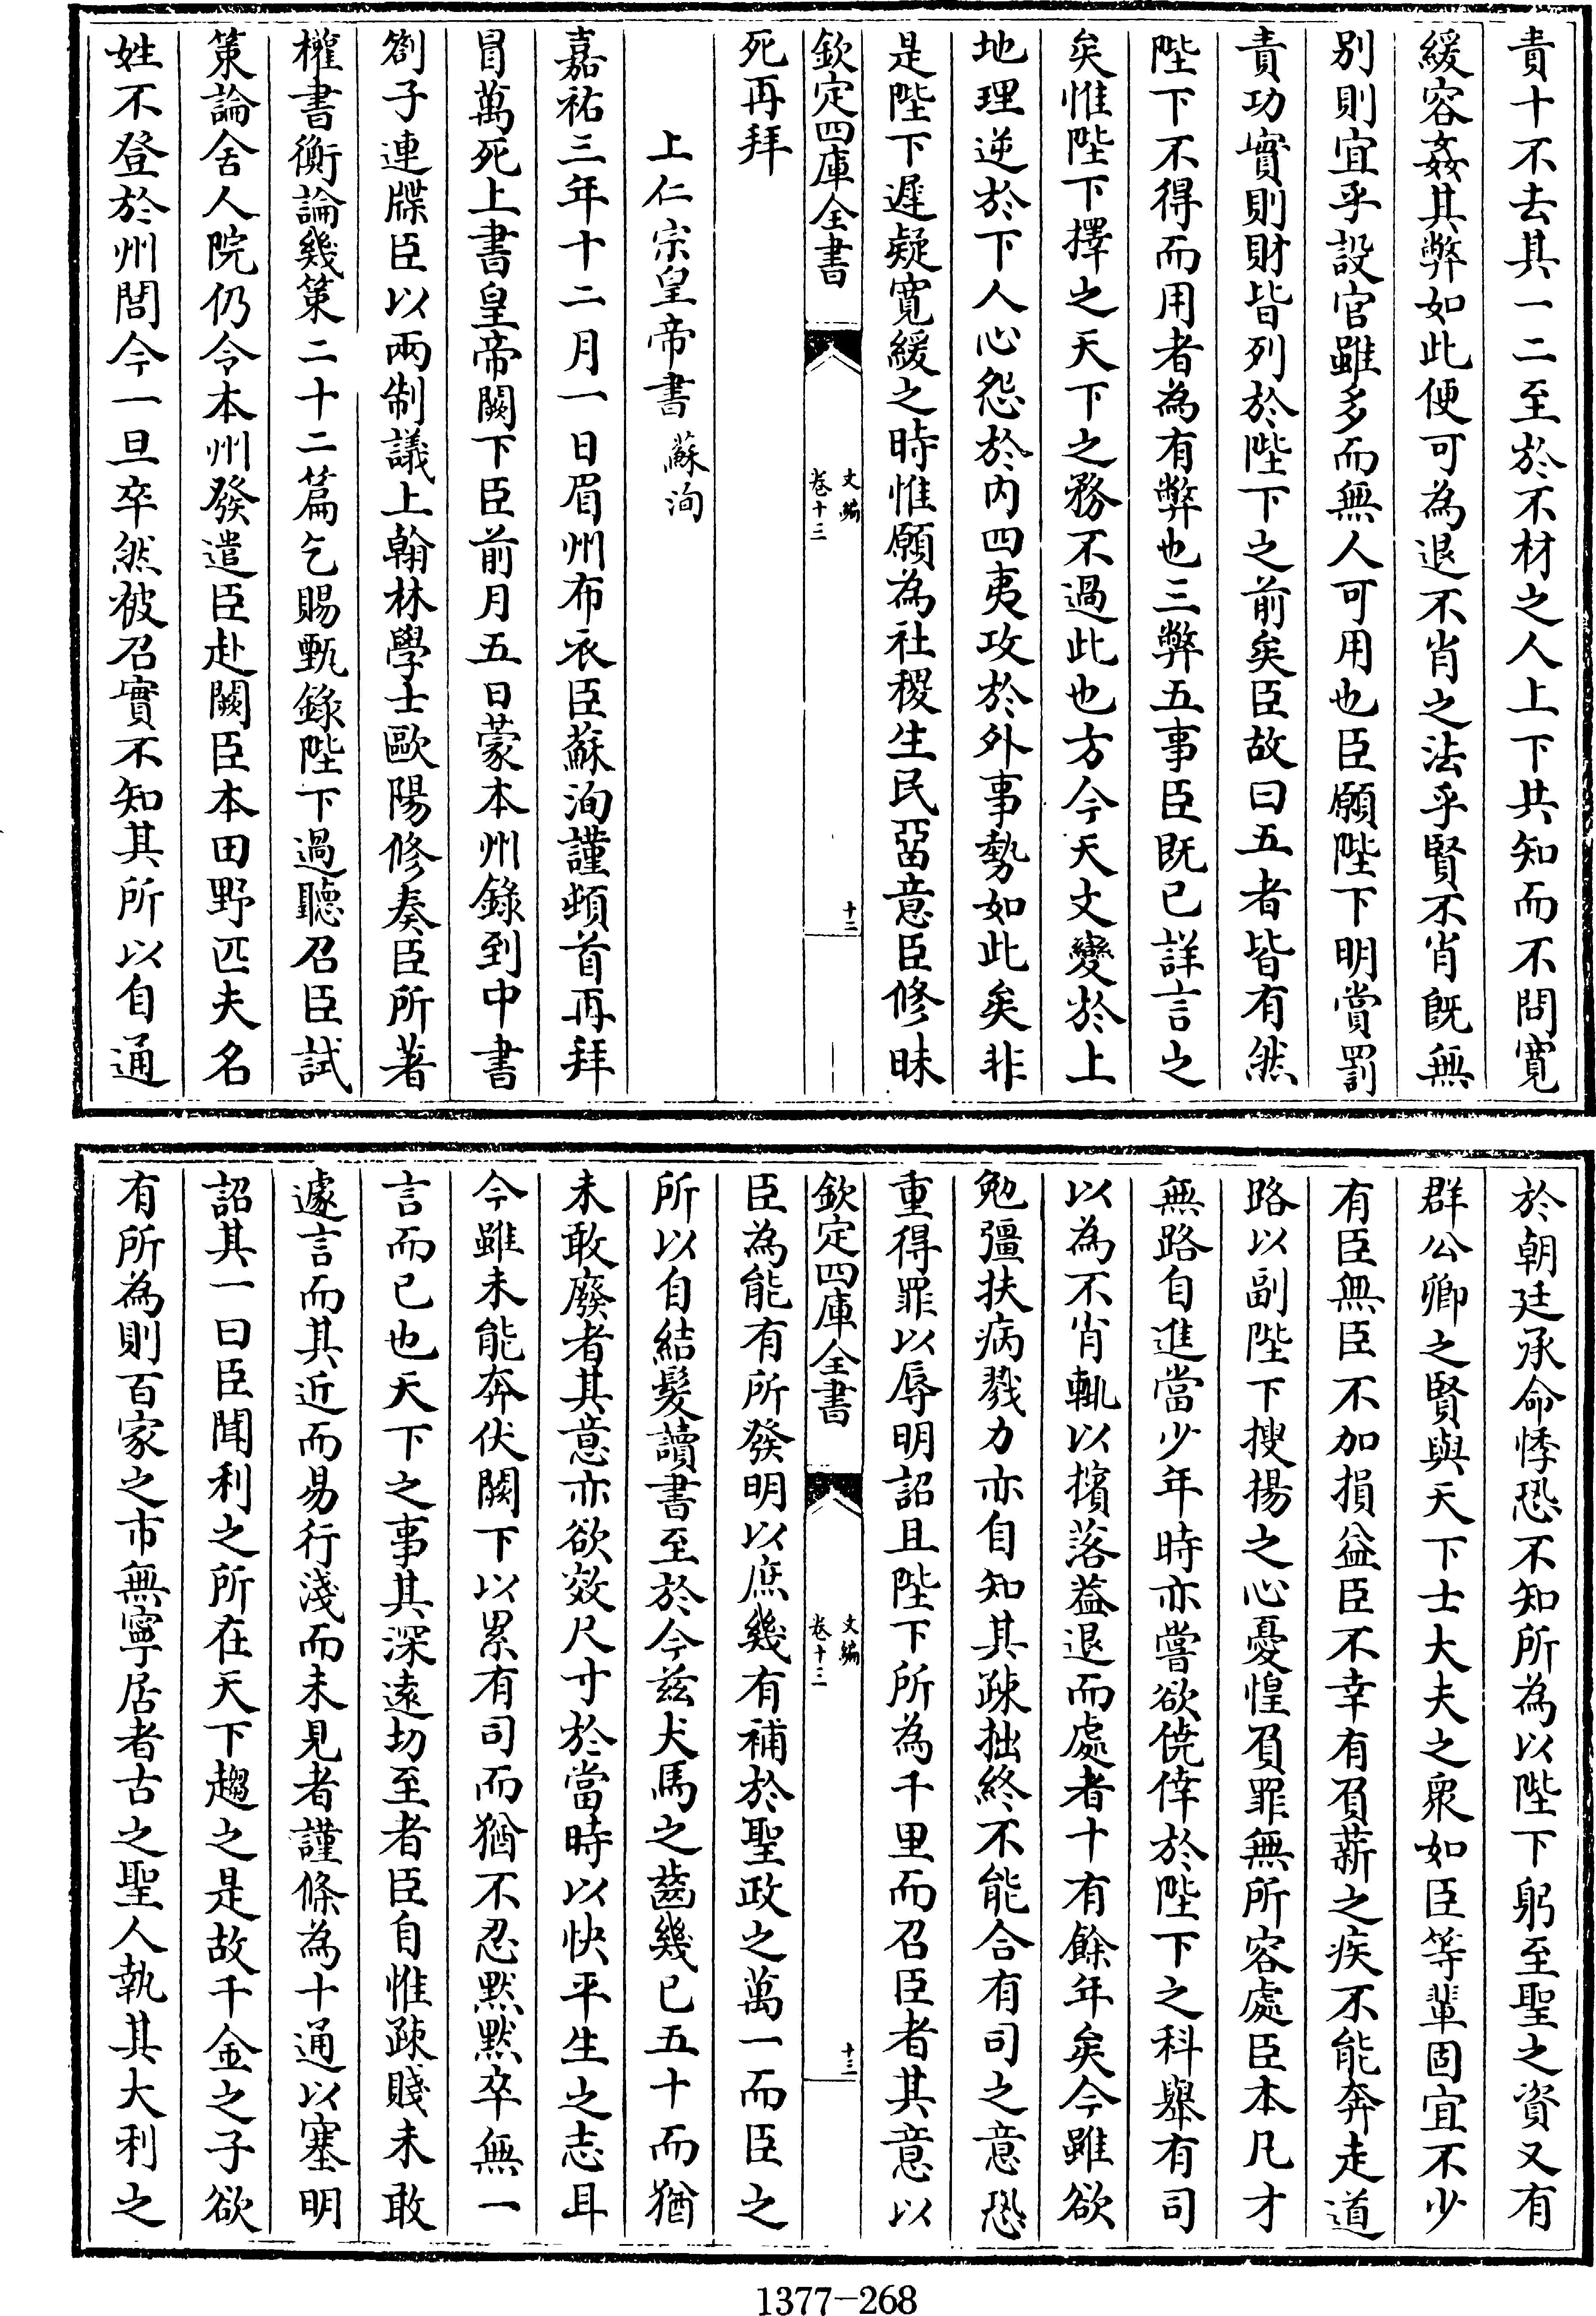 責十不去其一二至於不材之人上下共知而不問寛
緩容姦其弊如此便可為退不肖之法乎賢不肖既無
别則宜乎設官雖多而無人可用也臣願陛下明賞罰
責功實則財皆列於陛下之前矣臣故曰五者皆有然
陛下不得而用者為有弊也三弊五事臣既已詳言之
矣惟陛下擇之天下之務不過此也方今天文變於上
地理逆於下人心怨於内四夷攻於外事勢如此矣非
是陛下遲疑寛緩之時惟願為社稷生民畱意臣修昧
欽定四庫全書
文編
卷十三
十二
死再拜
上仁宗皇帝書 蘇洵
嘉祐三年十二月一日眉州布衣臣蘇洵謹頓首再拜
冒萬死上書皇帝闕下臣前月五日蒙本州錄到中書
劄子連牒臣以兩制議上翰林學士歐陽修奏臣所著
權書衡論幾策二十二篇乞賜甄錄陛下過聽召臣試
策論舍人院仍令本州發遣臣赴闕臣本田野匹夫名
姓不登於州閭今一旦卒然被召實不知其所以自通
於朝廷承命悸恐不知所為以陛下躬至聖之資又有
群公卿之賢與天下士大夫之衆如臣等輩固宜不少
有臣無臣不加損益臣不幸有負薪之疾不能奔走道
路以副陛下搜揚之心憂惶負罪無所容處臣本凡才
無路自進當少年時亦嘗欲僥倖於陛下之科舉有司
以為不肖輒以擯落葢退而處者十有餘年矣今雖欲
勉彊扶病戮力亦自知其疎拙終不能合有司之意恐
重得罪以辱明詔且陛下所為千里而召臣者其意以
欽定四庫全書
文編
卷十三
十三
臣為能有所發明以庶幾有補於聖政之萬一而臣之
所以自結髮讀書至於今茲犬馬之齒幾已五十而猶
未敢廢者其意亦欲效尺寸於當時以快平生之志耳
今雖未能奔伏闕下以累有司而猶不忍黙黙卒無一
言而已也天下之事其深遠切至者臣自惟疎賤未敢
遽言而其近而易行淺而未見者謹條為十通以塞明
詔其一曰臣聞利之所在天下趨之是故千金之子欲
有所為則百家之市無寧居者古之聖人執其大利之
1377-268